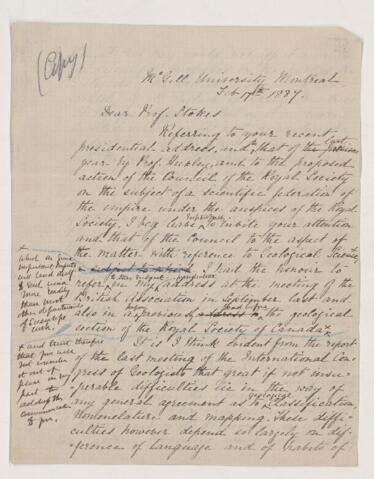 (Copy)
McGill University Montreal
Feb 17th 1887.
Dear Prof. Stokes
Referring to your recent
presidential address, and that of the last
year by Prof. Huxley, and to the proposed
action of the Council of the Royal Society
on the subject of a scientific federation of
the empire under the auspices of the Royal
Society, I beg leave to invite your attention
and that of the Council to the aspect of
the matter with reference to Geological Science,
I had the honour to
refer in my address at the meeting of the
British Association in September last and
also in a previous address to the geological
section of the Royal Society of Canada +
It is I think evident from the report
of the last meeting of the International Con-
gress of Geologists that great if not inse-
perable difficulties lie in the way
of any general agreement as to geological classification,
nomenclature and mapping. These diffi-
culties however depend so largely on dif-
ference of language and of habits of
+
+ and trust therefore
that you will
not consider
it out of
place on my
part to
address this
communication
to you.